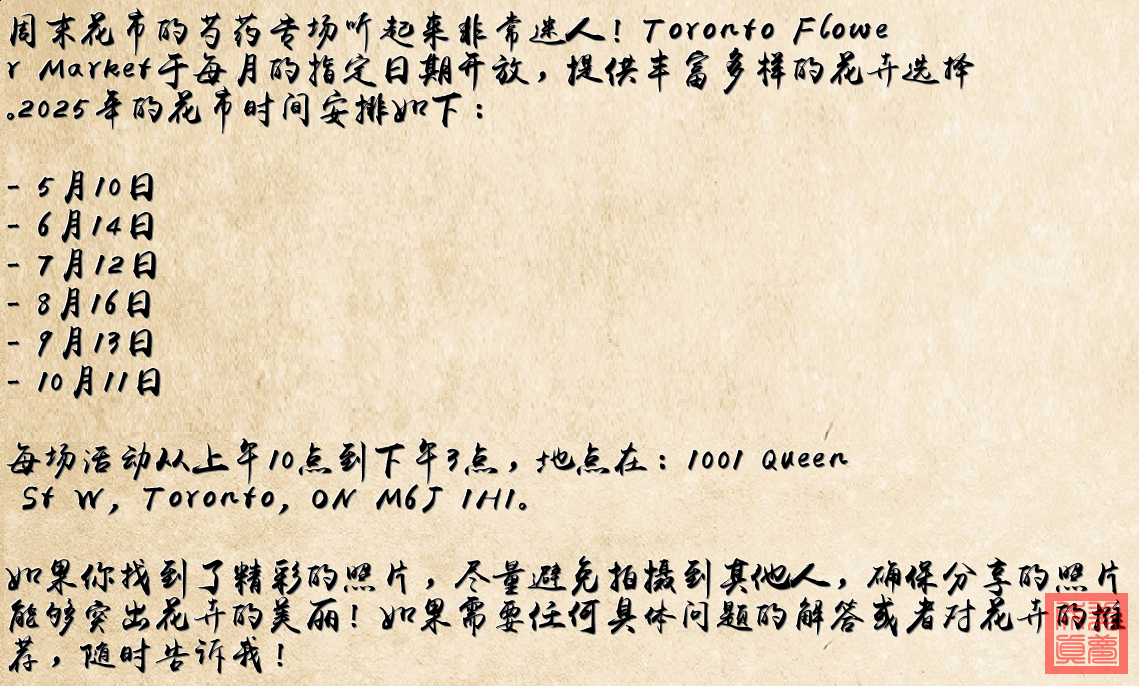 周末花市的芍药专场听起来非常迷人！Toronto Flowe
r Market于每月的指定日期开放，提供丰富多样的花卉选择
。2025年的花市时间安排如下：
- 5月10日
- 6月14日
- 7月12日
- 8月16日
- 9月13日
- 10月11日
每场活动从上午10点到下午3点，地点在：1001 Queen
St W, Toronto, ON M6J 1H1。
如果你找到了精彩的照片，尽量避免拍摄到其他人，确保分享的照片
能够突出花卉的美丽！如果需要任何具体问题的解答或者对花卉的推
荐，随时告诉我！